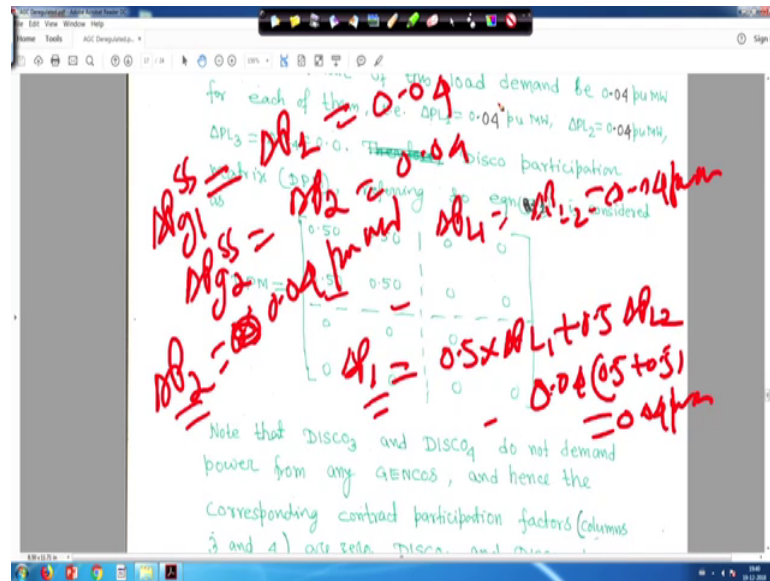 AGC Deregulated.pdf - Adobe Acrobat Reader DC
File Edit View Window Help
Home Tools AGC Deregulated.p... × Sign
17 / 24
load demand be 0.04 pu MW
for each of them, i.e. ΔPL1 = 0.04 pu MW, ΔPL2 = 0.04 pu MW,
ΔPL3 = 0.0. Disco participation
matrix referring to eqn is considered
as
0.50 0 0
DPM = 0.50 0.50 0 0
0 0 0
0 0 0
ΔPg1 ss = ΔP1 = 0.04
ΔPg2 ss = ΔP2 = 0.04
ΔPL1 = ΔPL2 = 0.04 pu MW
ΔP2 = 0.04 pu MW
ΔP1 = 0.5 × ΔPL1 + 0.5 ΔPL2
= 0.04 (0.5 + 0.5)
= 0.04 pu MW
Note that DISCO3 and DISCO4 do not demand
power from any GENCOs, and hence the
corresponding contract participation factors (columns
3 and 4) are zero. DISCO1 and
8.50 x 11.75 in
19:40